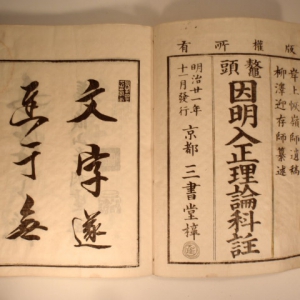 版權所有
嶺師遺稿
柳澤迎存師纂述
鼇頭
因明入正理論科註
明治廿一年
十一月發行
京都 三書堂梓
文字遂
于無